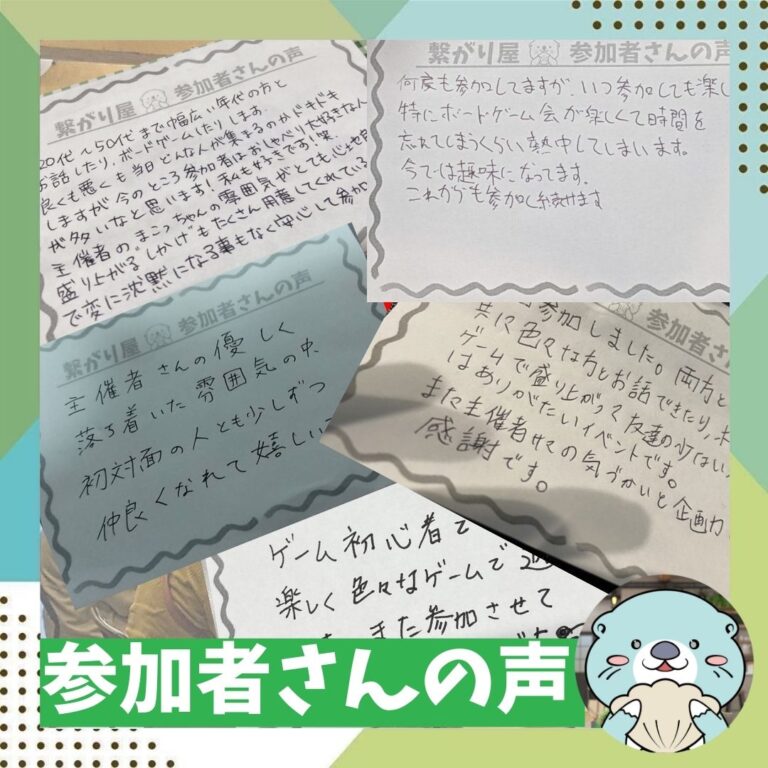 繋がり屋 参加者さんの声
20代〜50代まで幅広い年代の方と
お話したり、ボードゲームしたりします。
良くも悪くも当日どんな人が集まるのかドキドキ
しますが、今のところ参加者はおしゃべり大好きな人
が多いなと思います！私も好きです！笑
主催者のまこっちゃんの雰囲気がとても心地
盛り上がる"しかけ"もたくさん用意してくれている
で変に沈黙になる事もなく安心して参加
繋がり屋 参加者さんの声
何度も参加してますが、いつ参加しても楽し
特にボードゲーム会が楽しくて時間を
忘れてしまうくらい熱中してしまいます。
今では趣味になってます。
これからも参加し続けます
繋がり屋 参加者さんの声
主催者さんの優しく
落ち着いた雰囲気の中、
初対面の人とも少しずつ
仲良くなれて嬉しい
参加者さん
参加しました。両方と
共に色々な方とお話できたり、ボ
ゲームで盛り上がって友達の少ない
はありがたいイベントです。
また主催者サマの気づかいと企画力
感謝です。
ゲーム初心者で
楽しく色々なゲームで
また参加させて
参加者さんの声